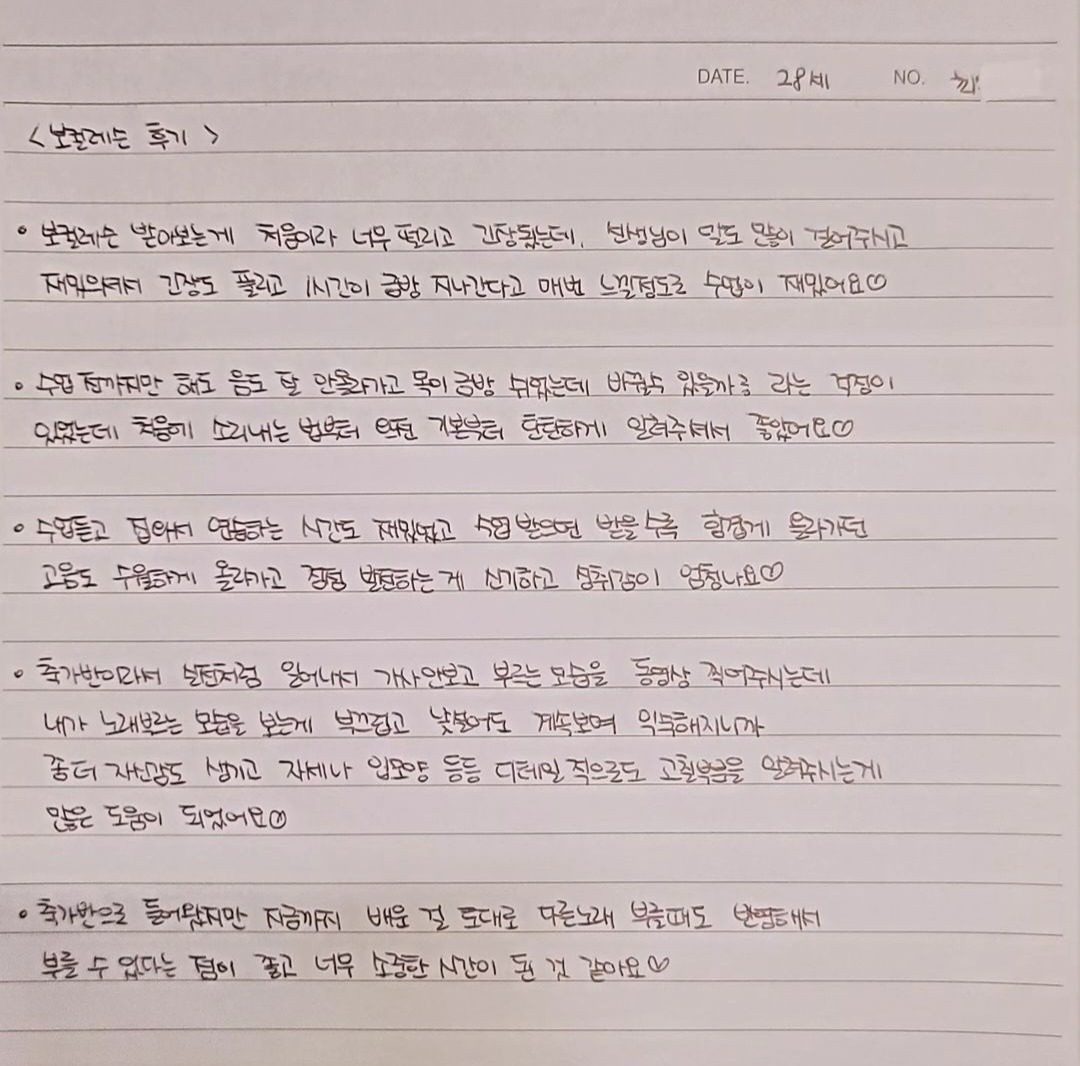 DATE. 28세 NO. 최
<보컬레슨 후기>
• 보컬레슨 받아보는게 처음이라 너무 떨리고 긴장됬는데, 선생님이 말도 많이 걸어주시고
재밌으셔서 긴장도 풀리고 1시간이 금방 지나간다고 매번 느낄정도로 수업이 재밌어요♡
• 수업 전까지만 해도 음도 잘 안올라가고 목이 금방 쉬었는데 바뀔수 있을까? 라는 걱정이
있었는데 처음에 소리내는 법부터 완전 기본부터 탄탄하게 알려주셔서 좋았어요♡
• 수업듣고 집와서 연습하는 시간도 재밌었고 수업 받으면 받을수록 힘겹게 올라가던
고음도 수월하게 올라가고 점점 발전하는게 신기하고 성취감이 엄청나요♡
• 축가반이라서 실전처럼 일어나서 가사안보고 부르는 모습을 동영상 찍어주시는데
내가 노래부르는 모습을 보는게 부끄럽고 낯설어도 계속보며 익숙해지니까
좀더 자신감도 생기고 자세나 입모양 등등 디테일 적으로도 고칠부분을 알려주시는게
많은 도움이 되었어요♡
• 축가반으로 들어왔지만 지금까지 배운 걸 토대로 다른노래 부를때도 반영해서
부를 수 있다는 점이 좋고 너무 소중한 시간이 된 것 같아요♡